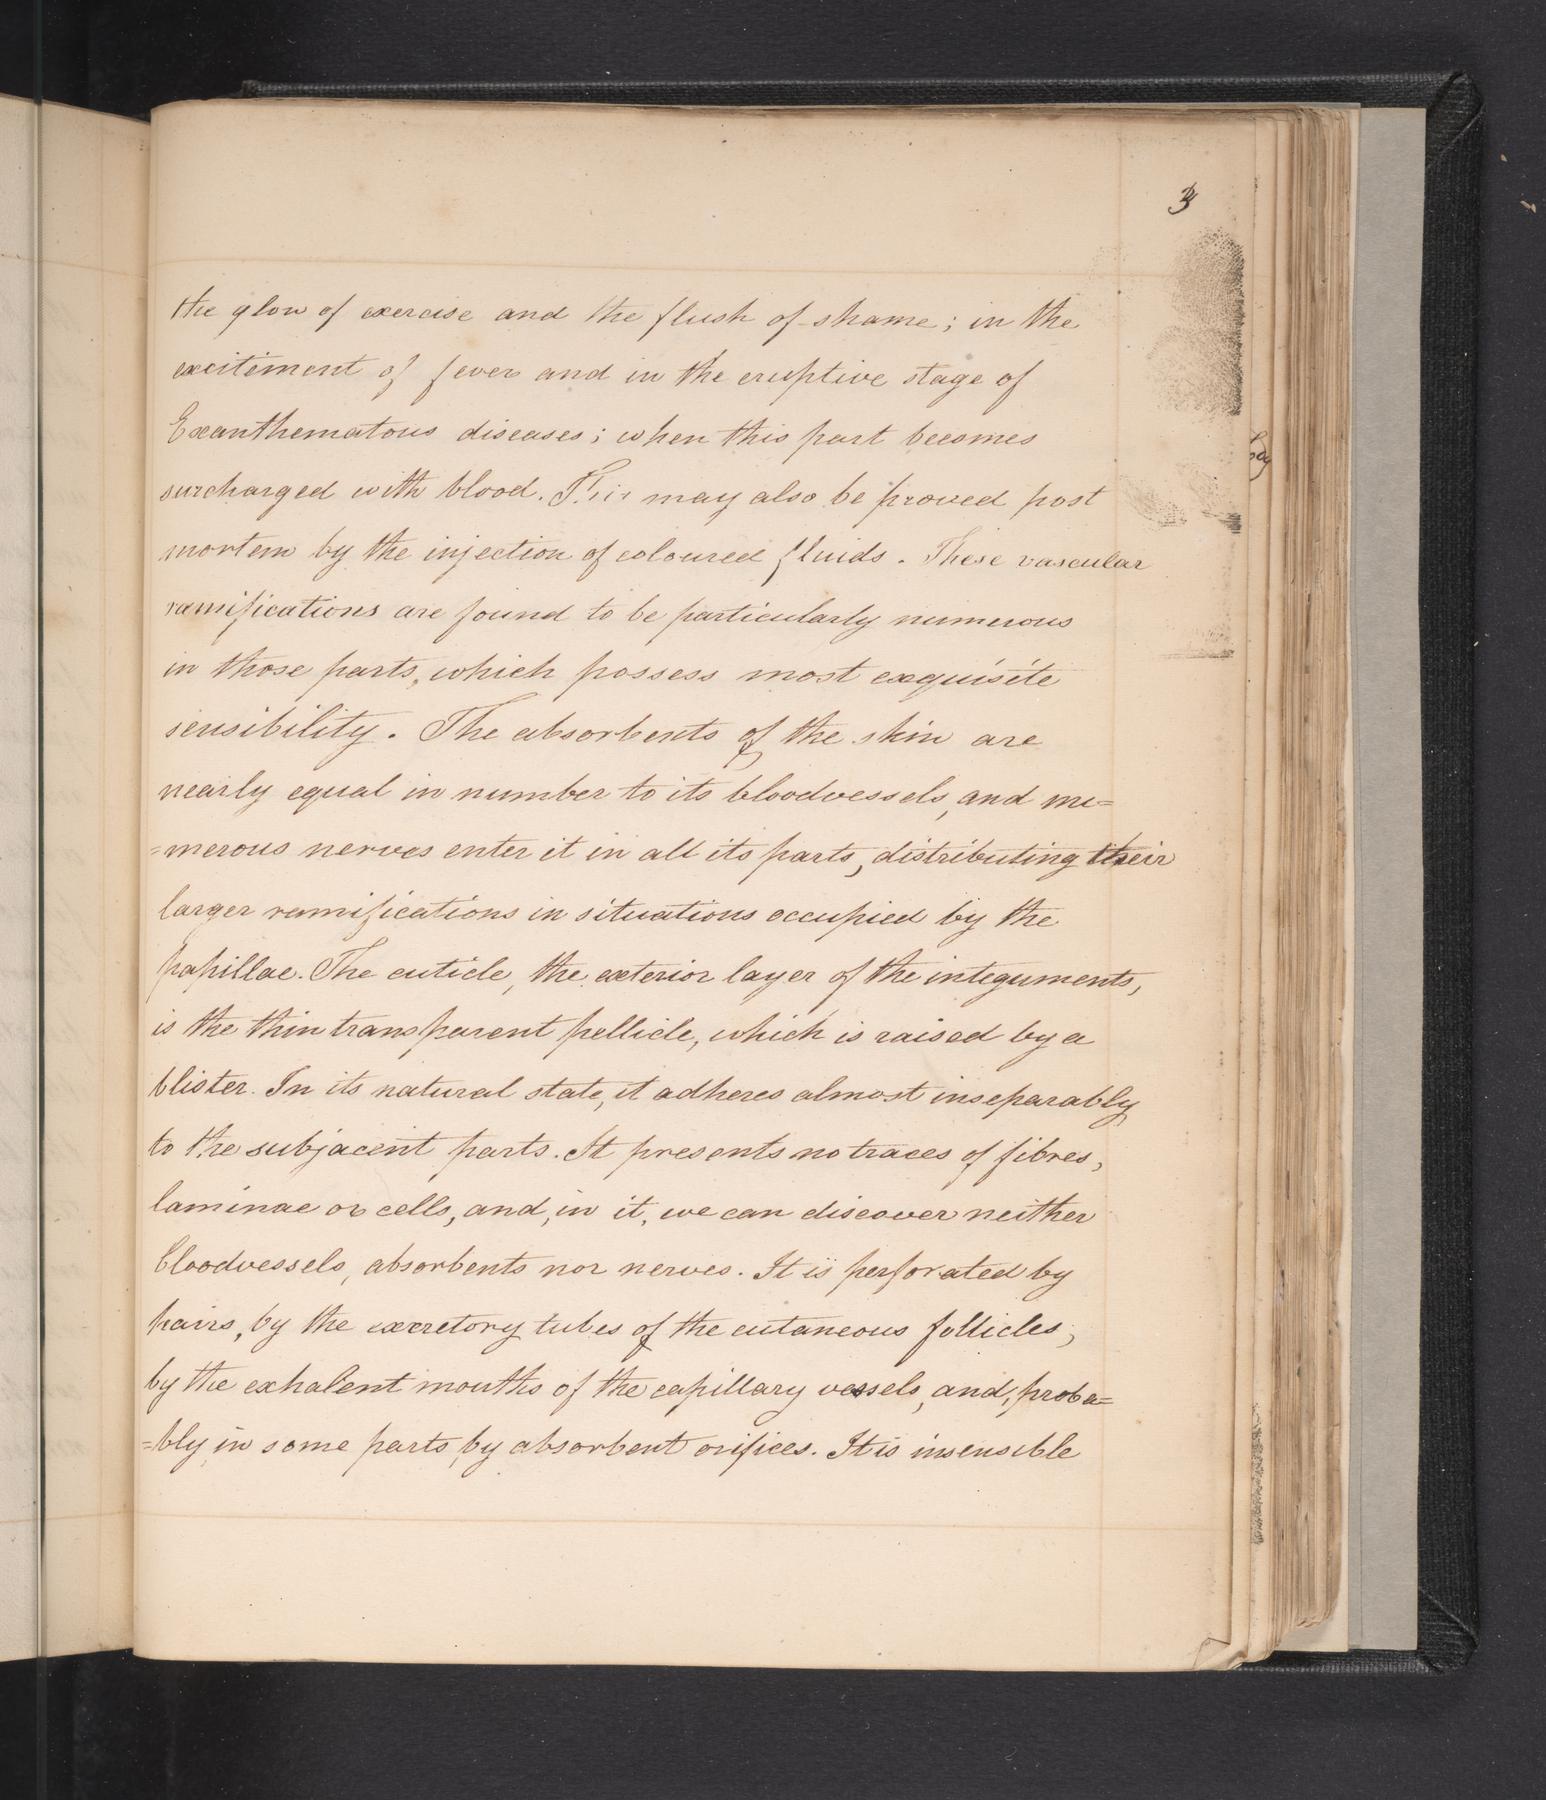 3
the glow of exercise and the flush of shame; in the
excitement of fever and in the eruptive stage of
Exanthematous diseases; when this part becomes
surcharged with blood. This may also be proved post
mortem by the injection of coloured fluids. These vascular
ramifications are found to be particularly numerous
in those parts, which possess most exquisite
sensibility. The absorbents of the skin are
nearly equal in number to its bloodvessels, and nu=
=merous nerves enter it in all its parts, distributing their
larger ramifications in situations occupied by the
papillae. The cuticle, the exterior layer of the integuments,
is the thin transparent pellicle, which is raised by a
blister. In its natural state, it adheres almost inseparably
to the subjacent parts. It presents no traces of fibres,
laminae or cells, and, in it, we can discover neither
bloodvessels, absorbents nor nerves. It is perforated by
hairs, by the excretory tubes of the cutaneous follicles,
by the exhalent mouths of the capillary vessels, and, proba=
=bly, in some parts, by absorbent orifices. It is insensible